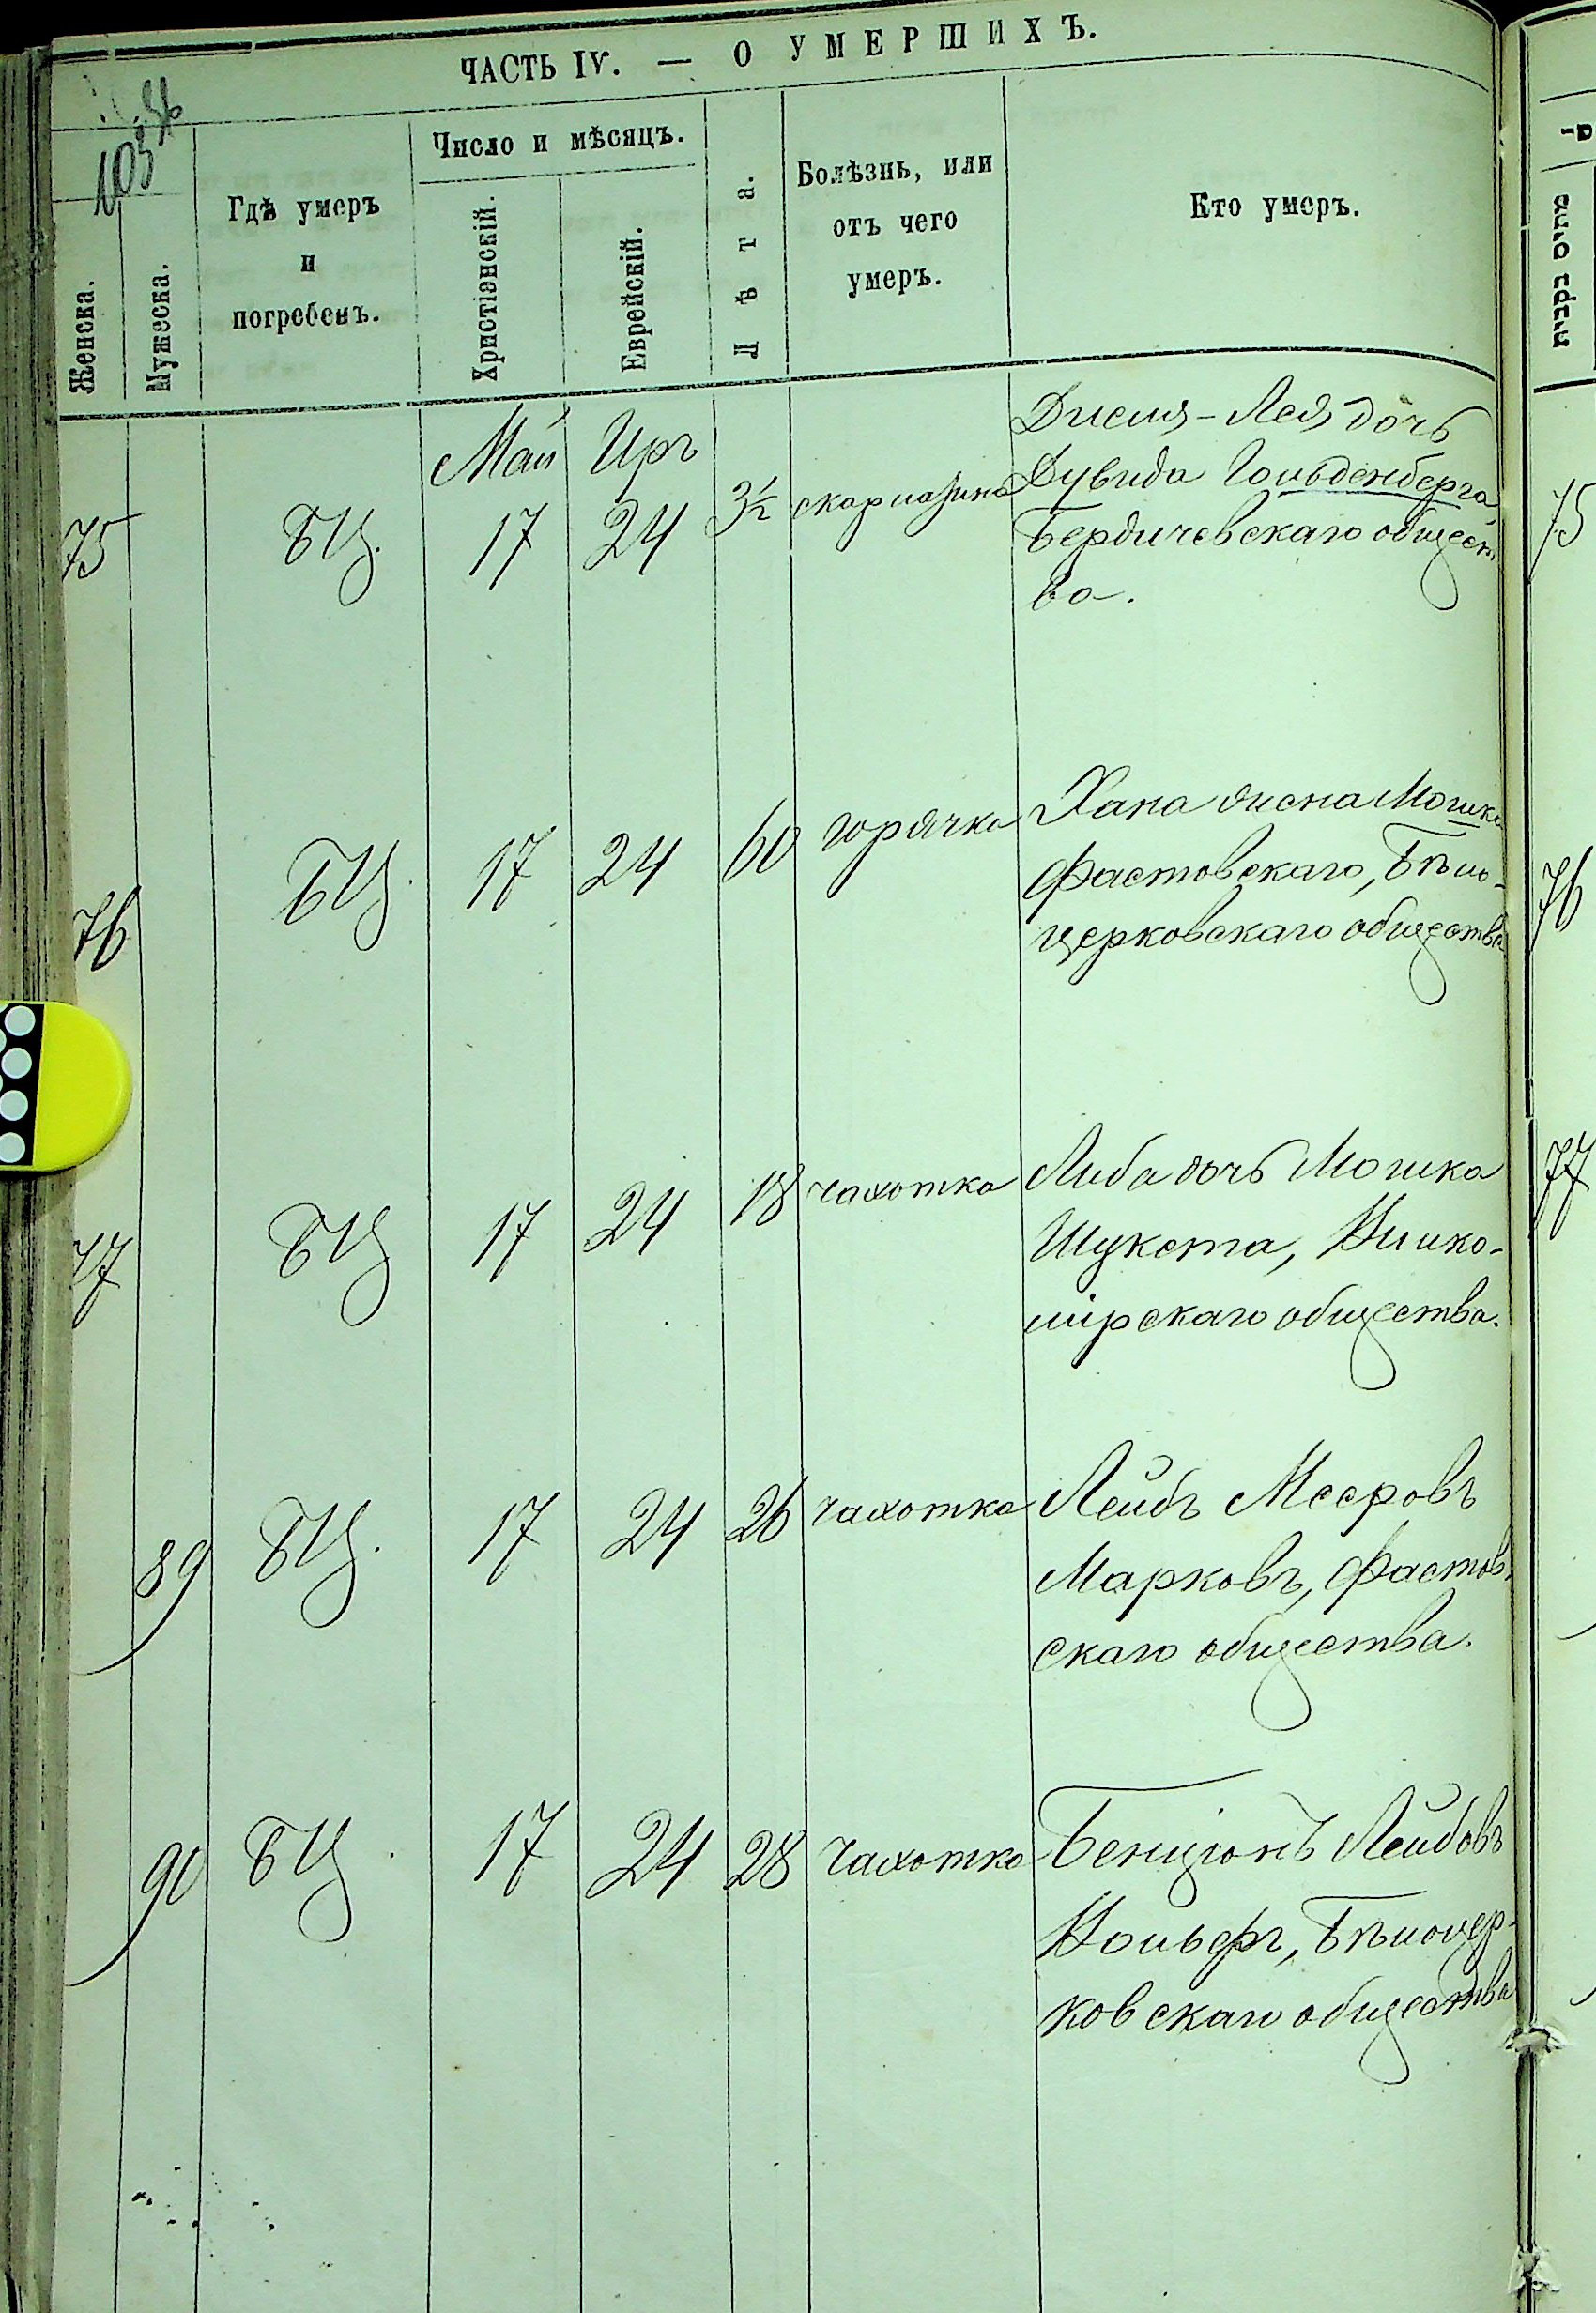 ЧАСТЬ IV. — О УМЕРШИХЪ.
103
Женска.
Мужеска.
Гдѣ умеръ
и
погребенъ.
Число и мѣсяцъ.
Христіанскій.
Еврейскій.
Лѣта.
Болѣзнь, или
отъ чего
умеръ.
Кто умеръ.
Май Иръ
75 БЦ. 17 24 3½ скарлатина
Лея дочь
Дувида Гольденберга,
Бердичевскаго общест
ва.
75
76 БЦ. 17 24 60 горячка
Хана жена Мошка
Фастовскаго, Бѣло-
церковскаго общества
76
77 БЦ 17 24 18 чахотка
Либа дочь Мошка
Шукста, Вилко-
мірскаго общества.
77
89 БЦ. 17 24 26 чахотка
Лейбъ Мееровъ
Марковъ, Фастов
скаго общества.
90 БЦ. 17 24 28 чахотка
Бенціонъ Лейбовъ
Вольфъ, Бѣлоцер-
ковскаго общества